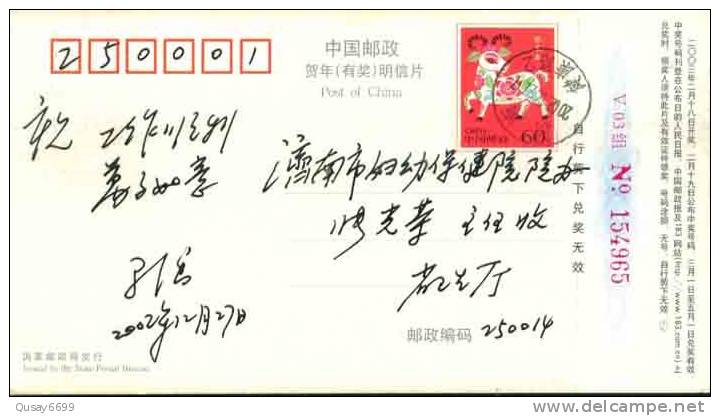 250001
中国邮政
贺年(有奖)明信片
Post of China
中国邮政
60分
祝 工作顺利
万事如意
2002年12月27日
济南市妇幼保健院院办
张光荣 主任收
省卫生厅
邮政编码 250014
国家邮政局发行
Issued by the State Postal Bureau
自行剪下兑奖无效
V 03组
No 154965
二〇〇三年二月十八日开奖,二月十九日公布中奖号码,三月一日至五月一日兑奖有效,
中奖号码刊登在公布日的人民日报、中国邮政报及183网站(http://www.183.com.cn)上
兑奖时,领奖人须持此片及有效证件领奖,号码涂改、无号、自行剪下无效
Qusay6699
delcampe.net